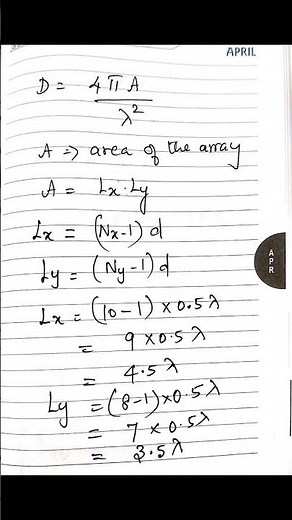 APRIL
D = 4πA / λ²
A => area of the array
A = Lx · Ly
Lx = (Nx-1) d
Ly = (Ny-1) d
Lx = (10-1) × 0.5λ
= 9 × 0.5λ
= 4.5λ
Ly = (8-1)×0.5λ
= 7 × 0.5λ
= 3.5λ
APR